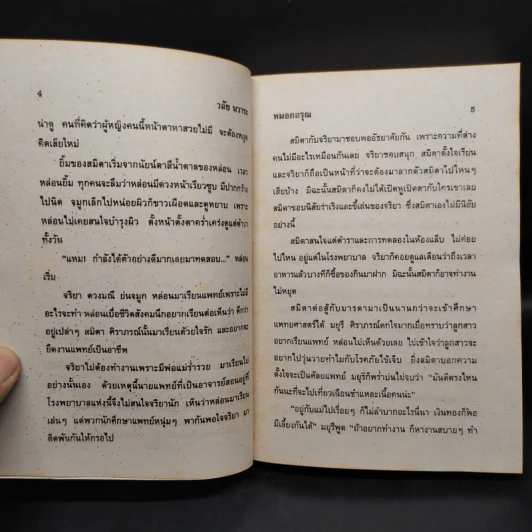 4
วลัย นวาระ
น่าดู คนที่คิดว่าผู้หญิงคนนี้หน้าตาหาสวยไม่มี จะต้องหยุด
คิดเสียใหม่
ยิ้มของสมิตาเริ่มจากนัยน์ตาสีน้ำตาลของหล่อน เวลา
หล่อนยิ้ม ทุกคนจะลืมว่าหล่อนมีดวงหน้าเรียวซูบ มีปากกว้าง
ไปนิด จมูกเล็กไปหน่อยผิวก็ขาวเผือดและดูหยาบ เพราะ
หล่อนไม่เคยสนใจบำรุงผิว ตั้งหน้าตั้งตาคร่ำเคร่งดูแต่ตำรา
ทั้งวัน
“แหม! กำลังได้ตัวอย่างดีมากเลยมาทดสอบ...” หล่อน
เริ่ม
จริยา ดวงมณี ย่นจมูก หล่อนมาเรียนแพทย์เพราะไม่มี
อะไรจะทำ หล่อนเบื่อชีวิตสังคมนึกอยากเรียนต่อเห็นว่า ดีกว่า
อยู่เปล่าๆ สมิตา ศิราภรณ์นั้นมาเรียนด้วยใจรัก และอยากจะ
ยึดงานแพทย์เป็นอาชีพ
จริยาไม่ต้องทำงานเพราะมีพ่อแม่ร่ำรวย มาเรียนไป
อย่างนั้นเอง ด้วยเหตุนี้นายแพทย์ที่เป็นอาจารย์สอนอยู่ที่
โรงพยาบาลแห่งนี้จึงไม่สนใจจริยานัก เห็นว่าหล่อนมาเรียน
เล่นๆ แต่พวกนักศึกษาแพทย์หนุ่มๆ พากันพอใจจริยา มา
ติดพันกันให้กรอไป
หมอกอรุณ
5
สมิตากับจริยามาชอบพออัชฌาศัยกัน เพราะความที่ต่าง
คนไม่มีอะไรเหมือนกันเลย จริยาชอบสนุก สมิตาตั้งใจเรียน
และจริยาก็ถือเป็นหน้าที่ว่าจะต้องมาลากตัวสมิตาไปไหนๆ
เสียบ้าง มิฉะนั้นสมิตาก็คงไม่ได้เปิดหูเปิดตากับใครเขาเลย
สมิตาชอบนิสัยร่าเริงและขี้เล่นของจริยา ซึ่งสมิตาเองไม่มีนิสัย
อย่างนี้
สมิตาสนใจแต่ตำราและการทดลองในห้องแล็บ ไม่ค่อย
ไปไหน อยู่แต่ในโรงพยาบาล จริยาก็คอยดูแลเตือนว่าถึงเวลา
อาหารแล้วบางทีก็ซื้อของกินมาฝาก มิฉะนั้นสมิตาก็อาจทำงาน
ไม่หยุด
สมิตาต่อสู้กับมารดามาเป็นนานกว่าจะเข้าศึกษา
แพทยศาสตร์ได้ มยุรี ศิราภรณ์ตกใจมากเมื่อทราบว่าลูกสาว
อยากเรียนแพทย์ หล่อนไม่เห็นด้วยเลย ไม่เข้าใจว่าลูกสาวจะ
อยากไปวุ่นวายทำไมกับโรคภัยไข้เจ็บ ยิ่งสมิตาบอกความ
ตั้งใจจะเป็นศัลยแพทย์ มยุรีก็พร่ำบ่นไม่จบว่า “มันดีตรงไหน
กันนะที่จะไปเที่ยวเฉือนชำแหละเนื้อคนน่ะ”
“อยู่กับแม่ไปเรื่อยๆ ก็ไม่ลำบากอะไรนี่นา เงินทองก็พอ
มีเลี้ยงกันได้” มยุรีพูด “ถ้าอยากทำงาน ก็หางานสบายๆ ทำ